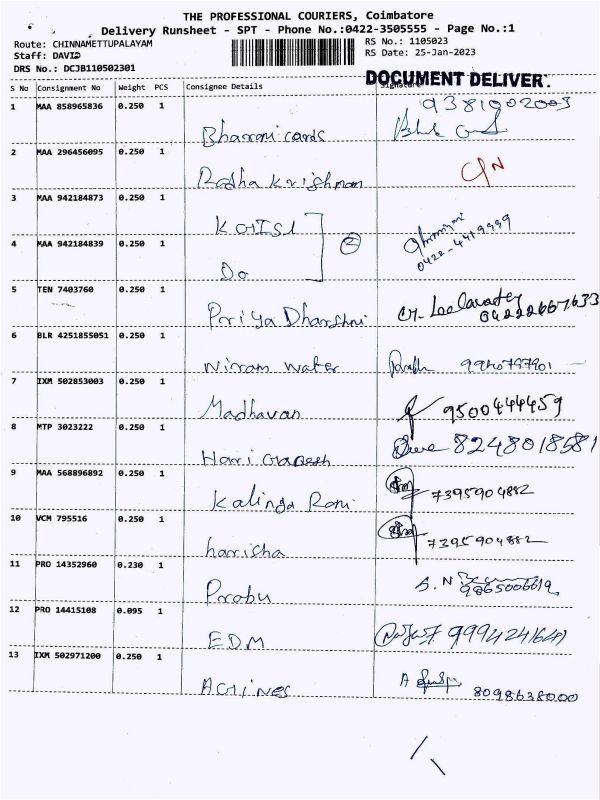 THE PROFESSIONAL COURIERS, Coimbatore
Delivery Runsheet - SPT - Phone No.:0422-3505555 - Page No.:1
Route: CHINNAMETTUPALAYAM RS No.: 1105023
Staff: DAVID RS Date: 25-Jan-2023
DRS No.: DCJB110502301
DOCUMENT DELIVER.
S No Consignment No Weight PCS Consignee Details Signature
1 MAA 858965836 0.250 1 9381902003
Bharani cards
2 MAA 296456095 0.250 1
Radha Krishnan
3 MAA 942184873 0.250 1
KGISL
4 MAA 942184839 0.250 1 2 0422-4419999
Do
5 TEN 7403760 0.250 1
Priya Dharshni 04222667633
6 BLR 4251855051 0.250 1
Niram water
7 IXM 502853003 0.250 1
Madhavan 9500444459
8 MTP 3023222 0.250 1
Hari Ganesh 8248018581
9 MAA 568896892 0.250 1
Kalinga Rani 7395904882
10 VCM 795516 0.250 1
harisha 7395904882
11 PRO 14352960 0.230 1
Prabu S. N
12 PRO 14415108 0.095 1
EDM 9994241641
13 IXM 502971200 0.250 1
8098638000